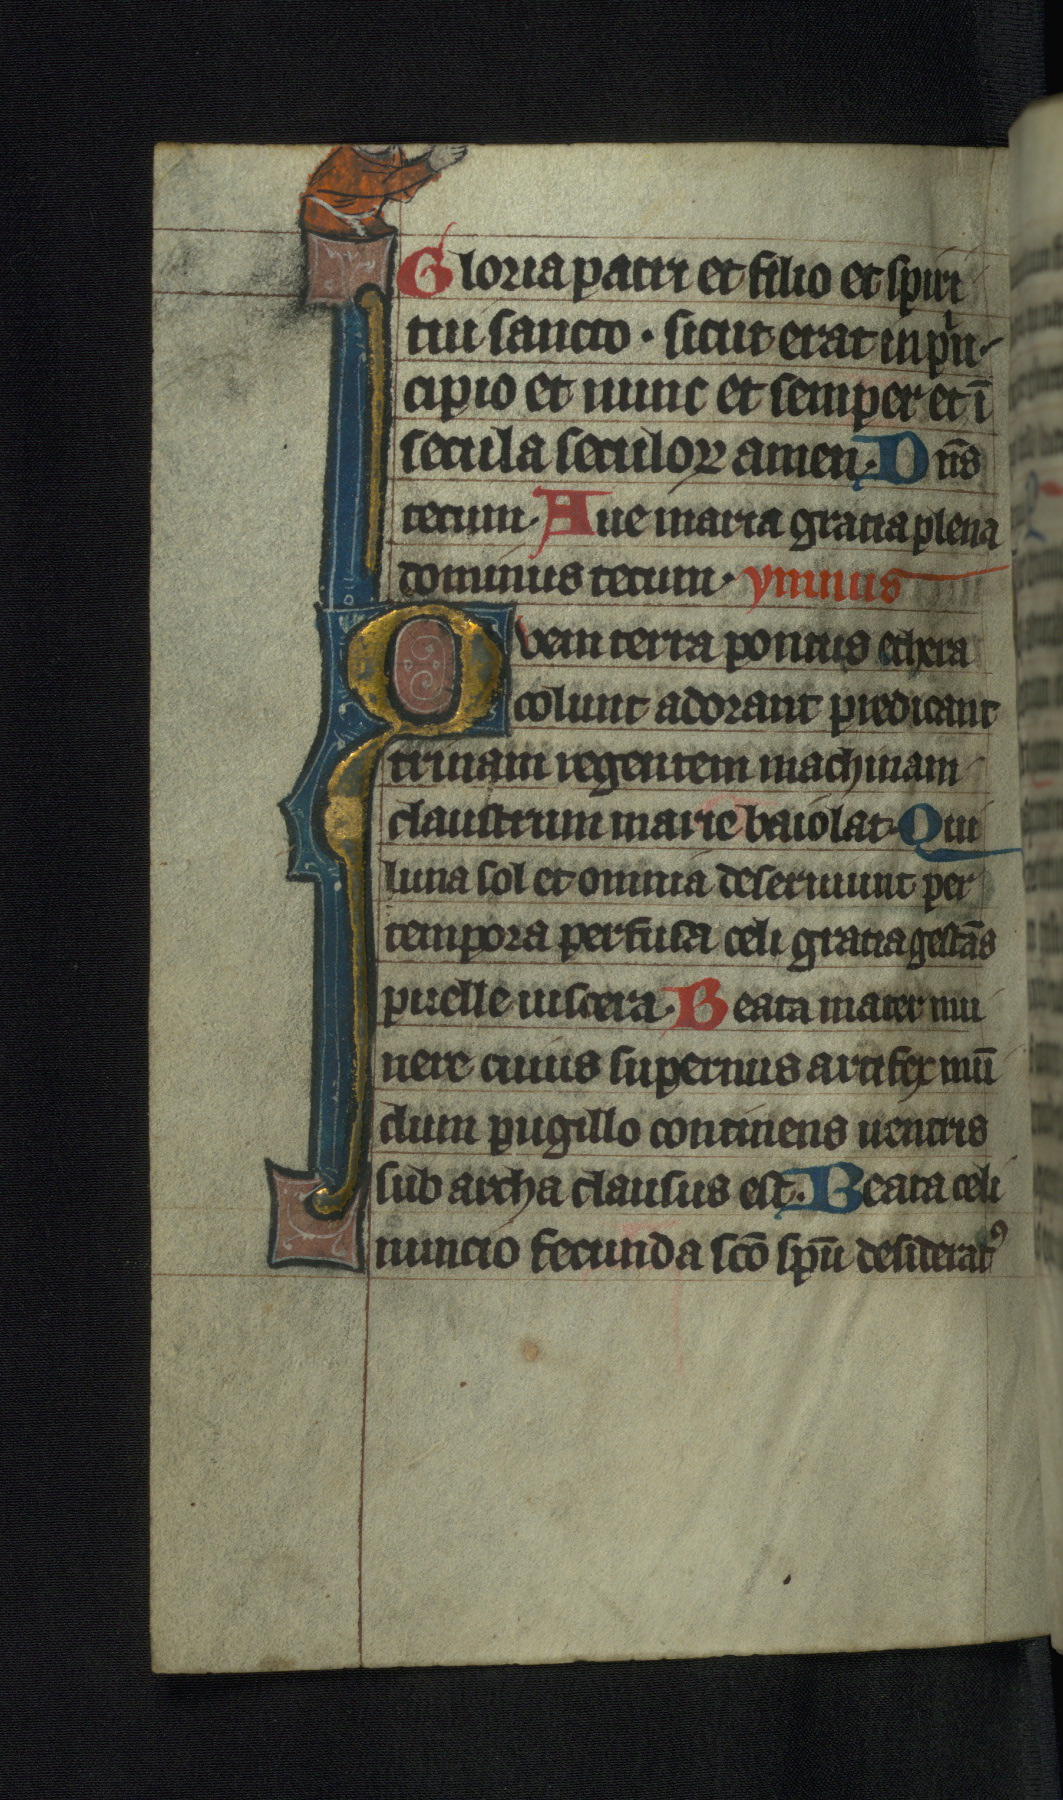 Gloria patri et filio et spiri
tui sancto · sicut erat in prin
cipio et nunc et semper et ī
secula seculoꝝ amen. Dn̄s
tecum. Aue maria gratia plena
dominus tecum · ymnus
Qvem terra pontus ethera
colunt adorant predicant
trinam regentem machinam
claustrum marie baiolat. Qui
luna sol et omnia deseruiunt per
tempora perfusa celi gratia gestās
puelle uiscera. Beata mater mu
nere cuius supernus artifex mū
dum pugillo continens uentris
sub archa clausus est. Beata celi
nuncio fecunda scō spū desideratꝰ